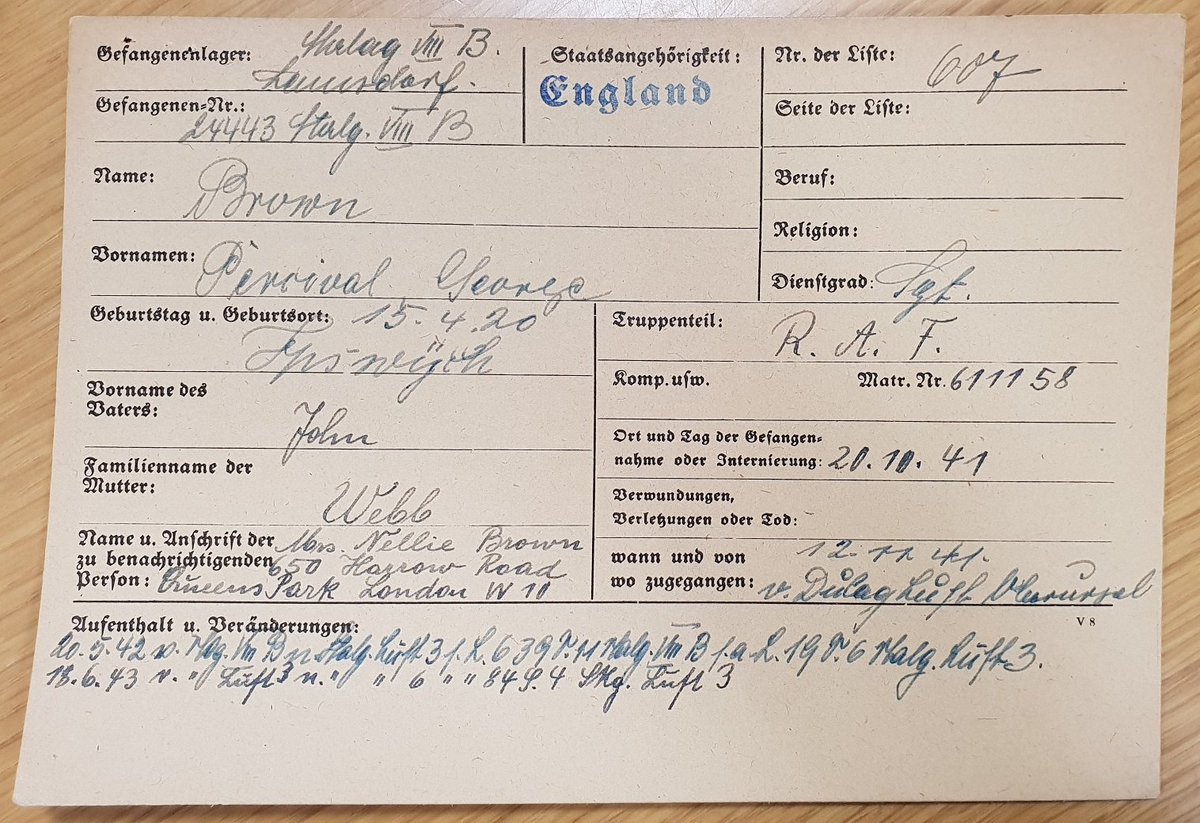 Gefangenenlager: Stalag VIII B.
Lamsdorf.
Gefangenen=Nr.:
24443 Stalg. VIII B
Staatsangehörigkeit:
England
Nr. der Liste: 607
Seite der Liste:
Name:
Brown
Beruf:
Religion:
Vornamen: Percival George
Dienstgrad: Sgt.
Geburtstag u. Geburtsort: 15. 4. 20
Ipswich
Truppenteil:
R. A. F.
Komp. usw. Matr. Nr. 611158
Vorname des
Vaters:
John
Ort und Tag der Gefangen=
nahme oder Internierung: 20. 10. 41
Familienname der
Mutter:
Webb
Verwundungen,
Verletzungen oder Tod:
Name u. Anschrift der Mrs. Nellie Brown
zu benachrichtigenden 650 Harrow Road
Person: Queens Park London W 10
wann und von 12 11 41.
wo zugegangen: v. Dulag Luft Oberursel
V 8
Aufenthalt u. Veränderungen:
20. 5. 42 v. Stlg. VIII B n. Stalg. Luft 3 l. L. 639 S. 11 Stalg. VIII B l. a L. 19 S. 6 Stalg. Luft 3.
18. 6. 43 v. " Luft 3 n. " " 6 " " 84 S. 4 Stlg. Luft 3